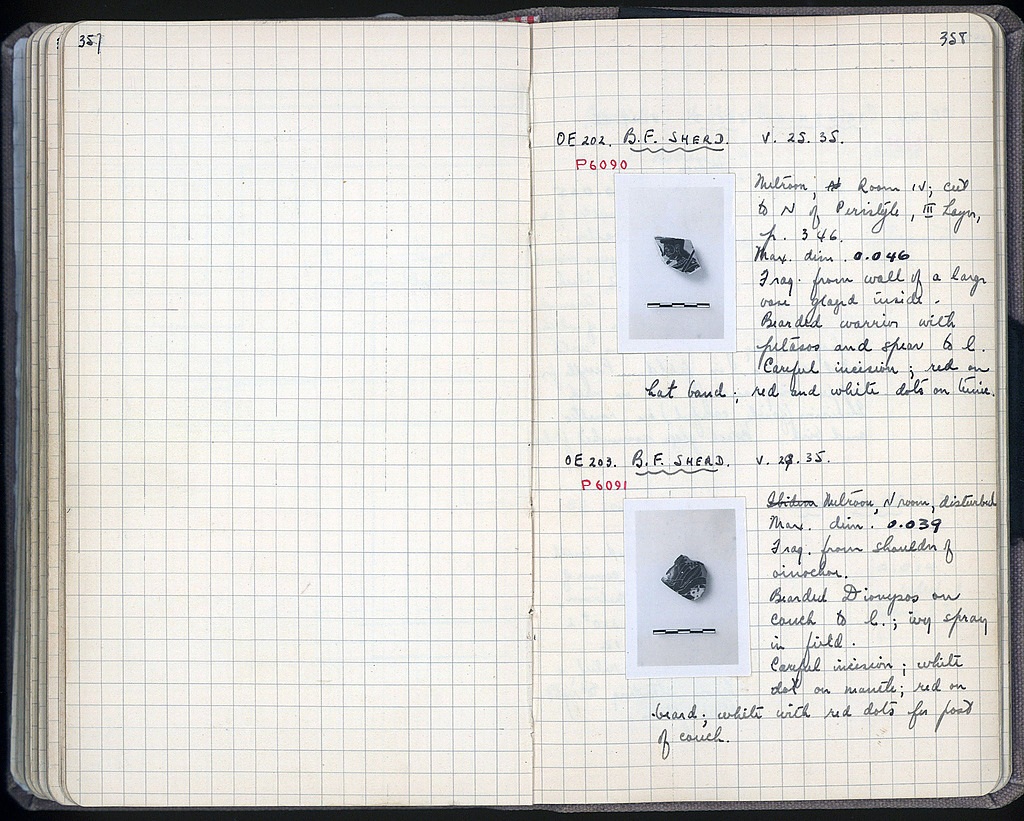 357
358
OE 202. B.F. SHERD. V. 25. 35.
P6090
Metroon; Room IV; cut
to N of Peristyle, III Layer,
p. 346.
Max. dim. 0.046
Frag. from wall of a large
vase glazed inside.
Bearded warrior with
petasos and spear to l.
Careful incision; red on
hat band; red and white dots on tunic.
OE 203. B.F. SHERD. V. 35.
P6091
Ibidem Metroon, N room, disturbed
Max. dim. 0.039
Frag. from shoulder of
oinochoe.
Bearded Dionysos on
couch to l.; ivy spray
in field.
Careful incision; white
dot on mantle; red on
beard; white with red dots for post
of couch.